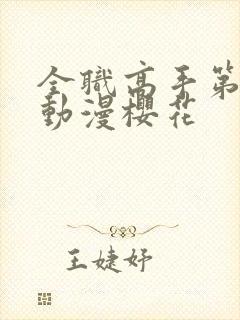 全職高手第
動漫櫻花
王婕妤